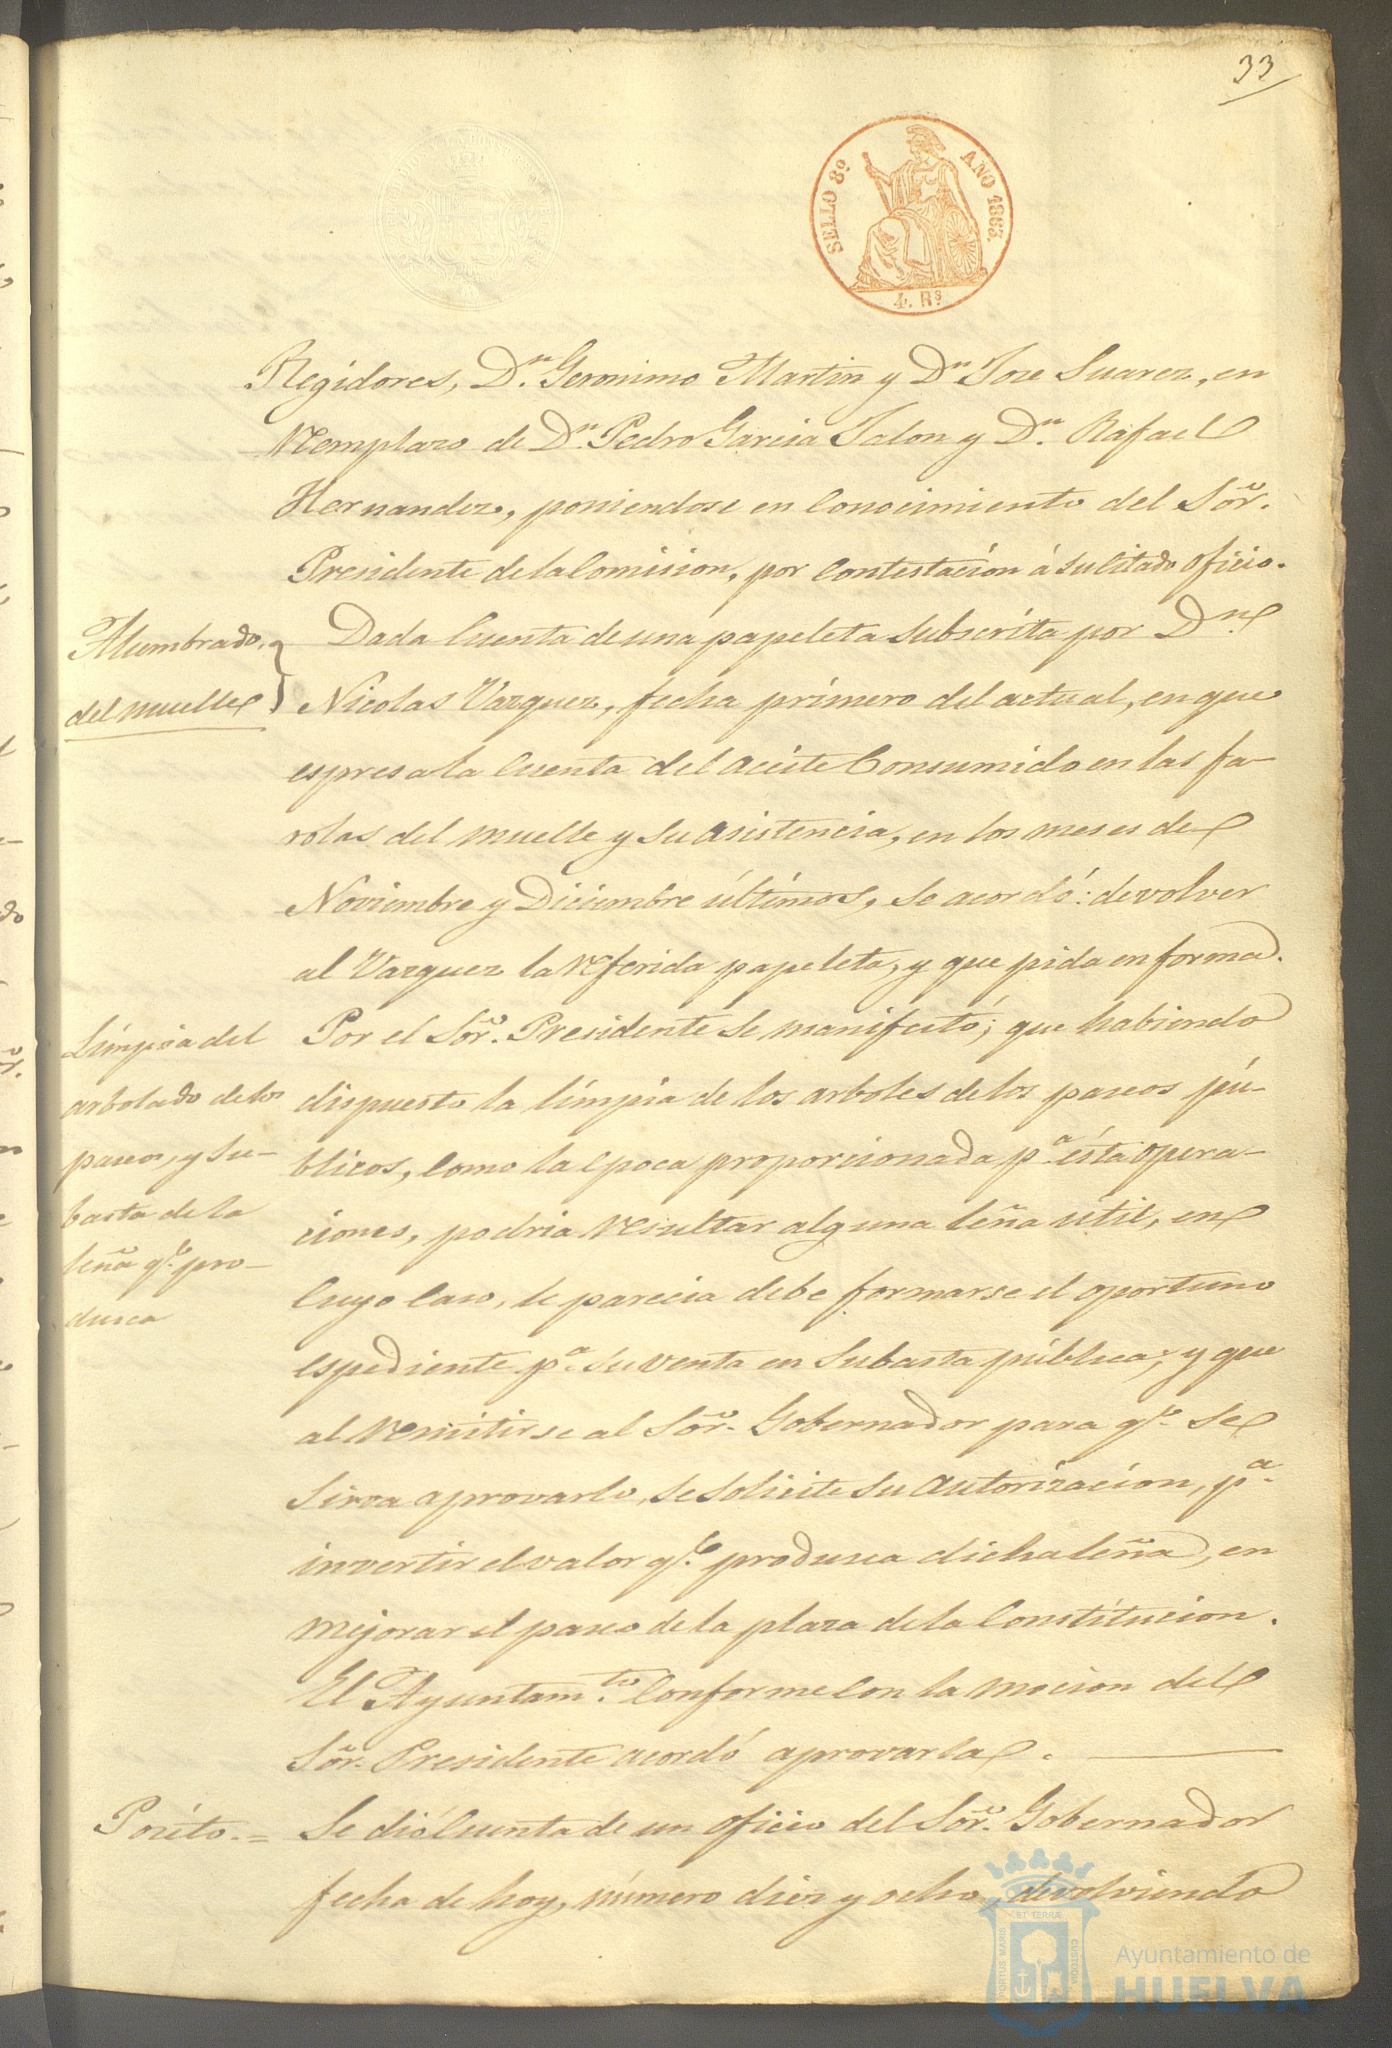 33
SELLO 8º
AÑO 1863.
4. Rs
Regidores, Dn. Geronimo Martin y Dn Jose Suarez, en
remplazo de Dn. Pedro Garcia Jalon y Dn. Rafael
Hernandez, poniendose en conocimiento del Sor.
Presidente de la Comision, por contestación á su citado oficio.
Alumbrado
del muelle
Dada cuenta de una papeleta subscrita por Dn.
Nicolas Vazquez, fecha primero del actual, en que
espresa la cuenta del aceite consumido en las fa-
rolas del muelle y su asistencia, en los meses de
Noviembre y Diciembre últimos, se acordó: devolver
al Vazquez la referida papeleta, y que pida en forma.
Limpia del
arbolado de los
paseos, y su-
basta de la
leña qe. pro-
dusca
Por el Sor. Presidente se manifestó; que habiendo
dispuesto la limpia de los arboles de los paseos pú-
blicos, como la época proporcionada pa. ésta opera-
ciones, podria resultar alguna leña útil, en
cuyo caso, le parecia debe formarse el oportuno
espediente pa. su venta en subasta pública; y que
al remitirse al Sor. Gobernador para qe. se
sirva aprovarlo, se solicite su autorización, pa.
invertir el valor qe. produsca dicha leña, en
mejorar el paseo de la plaza de la Constitucion.
El Ayuntamto. conforme con la mocion del
Sor. Presidente acordó aprovarla.
Pósito.=
Se dió cuenta de un oficio del Sor. Gobernador
fecha de hoy, número diez y ocho, devolviendo
PORTUS MARIS
ET TERRÆ
CUSTODIA
Ayuntamiento de
HUELVA